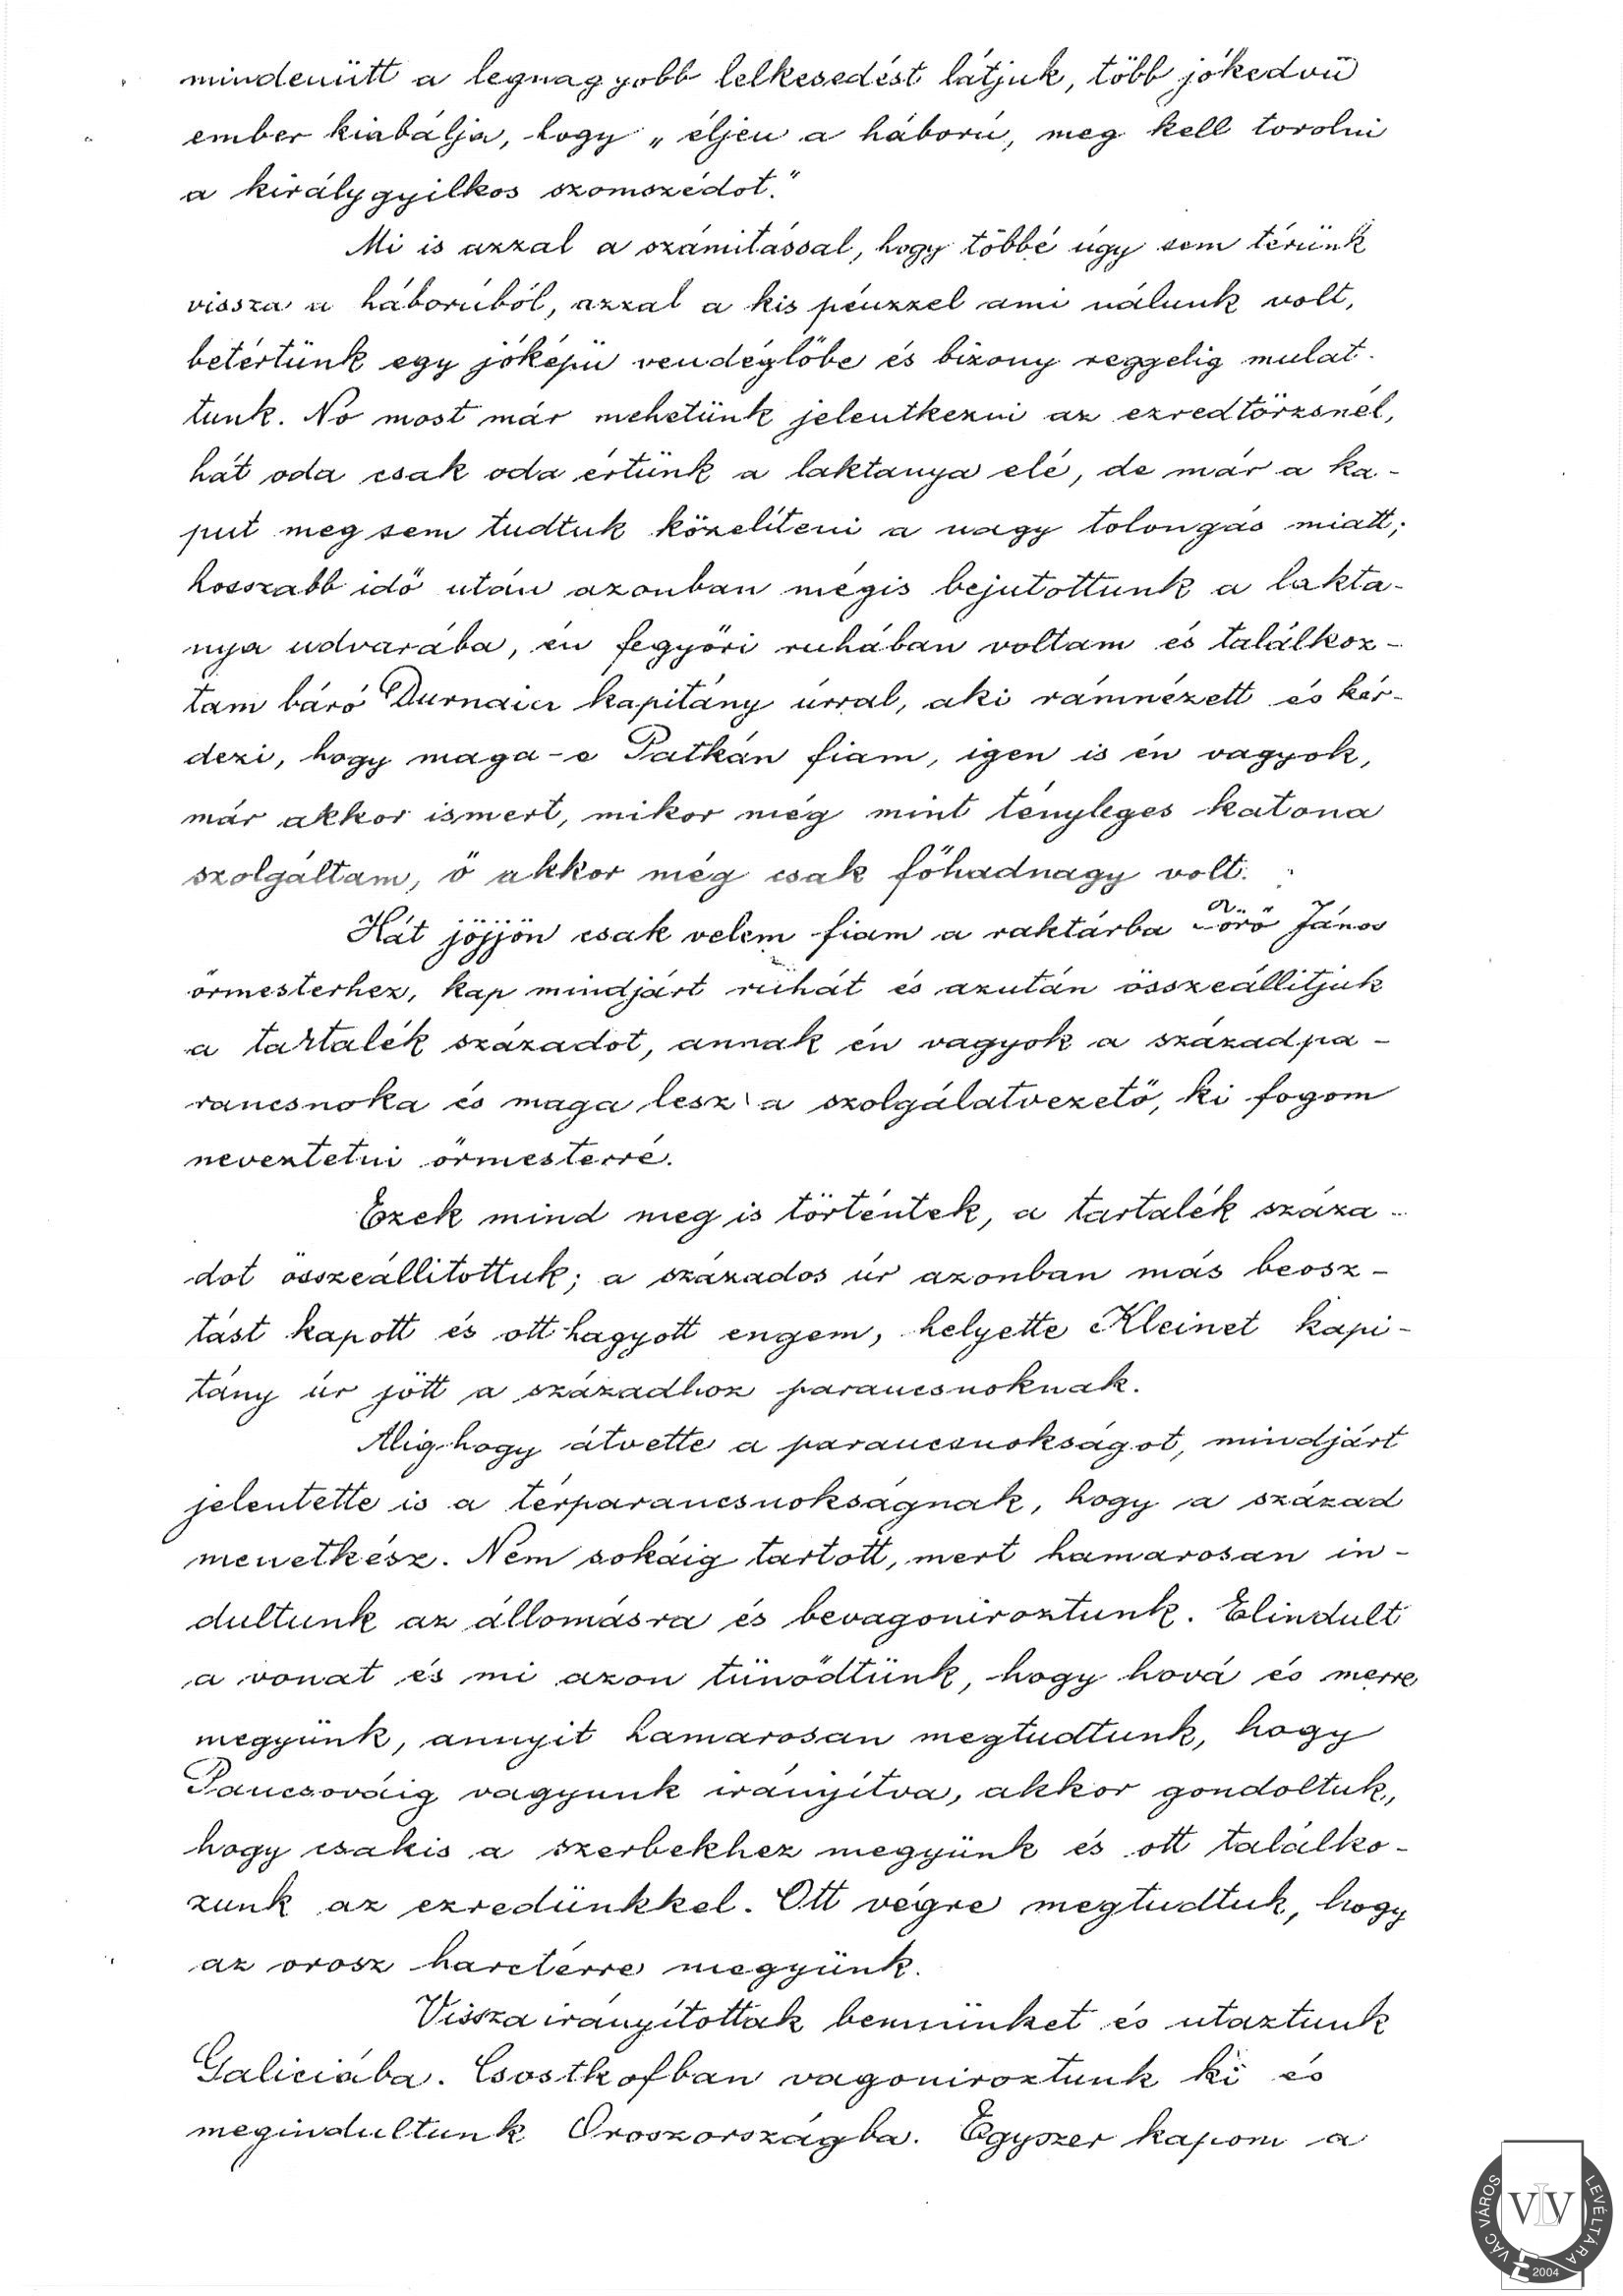 mindenütt a legnagyobb lelkesedést látjuk, több jókedvü
ember kiabálja, hogy „éljen a háború, meg kell torolni
a királygyilkos szomszédot."
Mi is azzal a számitással, hogy többé úgy sem térünk
vissza a háborúból, azzal a kis pénzzel ami nálunk volt,
betértünk egy jóképü vendéglőbe és bizony reggelig mulat-
tunk. No most már mehetünk jelentkezni az ezredtörzsnél,
hát oda csak oda értünk a laktanya elé, de már a ka-
put meg sem tudtuk közelíteni a nagy tolongás miatt;
hosszabb idő után azonban mégis bejutottunk a lakta-
nya udvarába, én fegyőri ruhában voltam és találkoz-
tam báró kapitány úrral, aki rámnézett és kér-
dezi, hogy maga-e Patkán fiam, igen is én vagyok,
már akkor ismert, mikor még mint tényleges katona
szolgáltam, ő akkor még csak főhadnagy volt.
Hát jöjjön csak velem fiam a raktárba János
őrmesterhez, kap mindjárt ruhát és azután összeállitjuk
a tartalék századot, annak én vagyok a századpa-
rancsnoka és maga lesz a szolgálatvezető, ki fogom
neveztetni őrmesterré.
Ezek mind meg is történtek, a tartalék száza-
dot összeállitottuk; a százados úr azonban más beosz-
tást kapott és ott hagyott engem, helyette Kleinet kapi-
tány úr jött a századhoz parancsnoknak.
Alig hogy átvette a parancsnokságot, mindjárt
jelentette is a térparancsnokságnak, hogy a század
menetkész. Nem sokáig tartott, mert hamarosan in-
dultunk az állomásra és bevagoniroztunk. Elindult
a vonat és mi azon tünődtünk, hogy hová és merre
megyünk, annyit hamarosan megtudtunk, hogy
Pancsováig vagyunk irányítva, akkor gondoltuk,
hogy csakis a szerbekhez megyünk és ott találko-
zunk az ezredünkkel. Ott végre megtudtuk, hogy
az orosz harctérre megyünk.
Vissza irányítottak bennünket és utaztunk
Galiciába. Csostkofban vagoniroztunk ki és
megindultunk Oroszországba. Egyszer kapom a
VÁC VÁROS LEVÉLTÁRA
VLV
2004